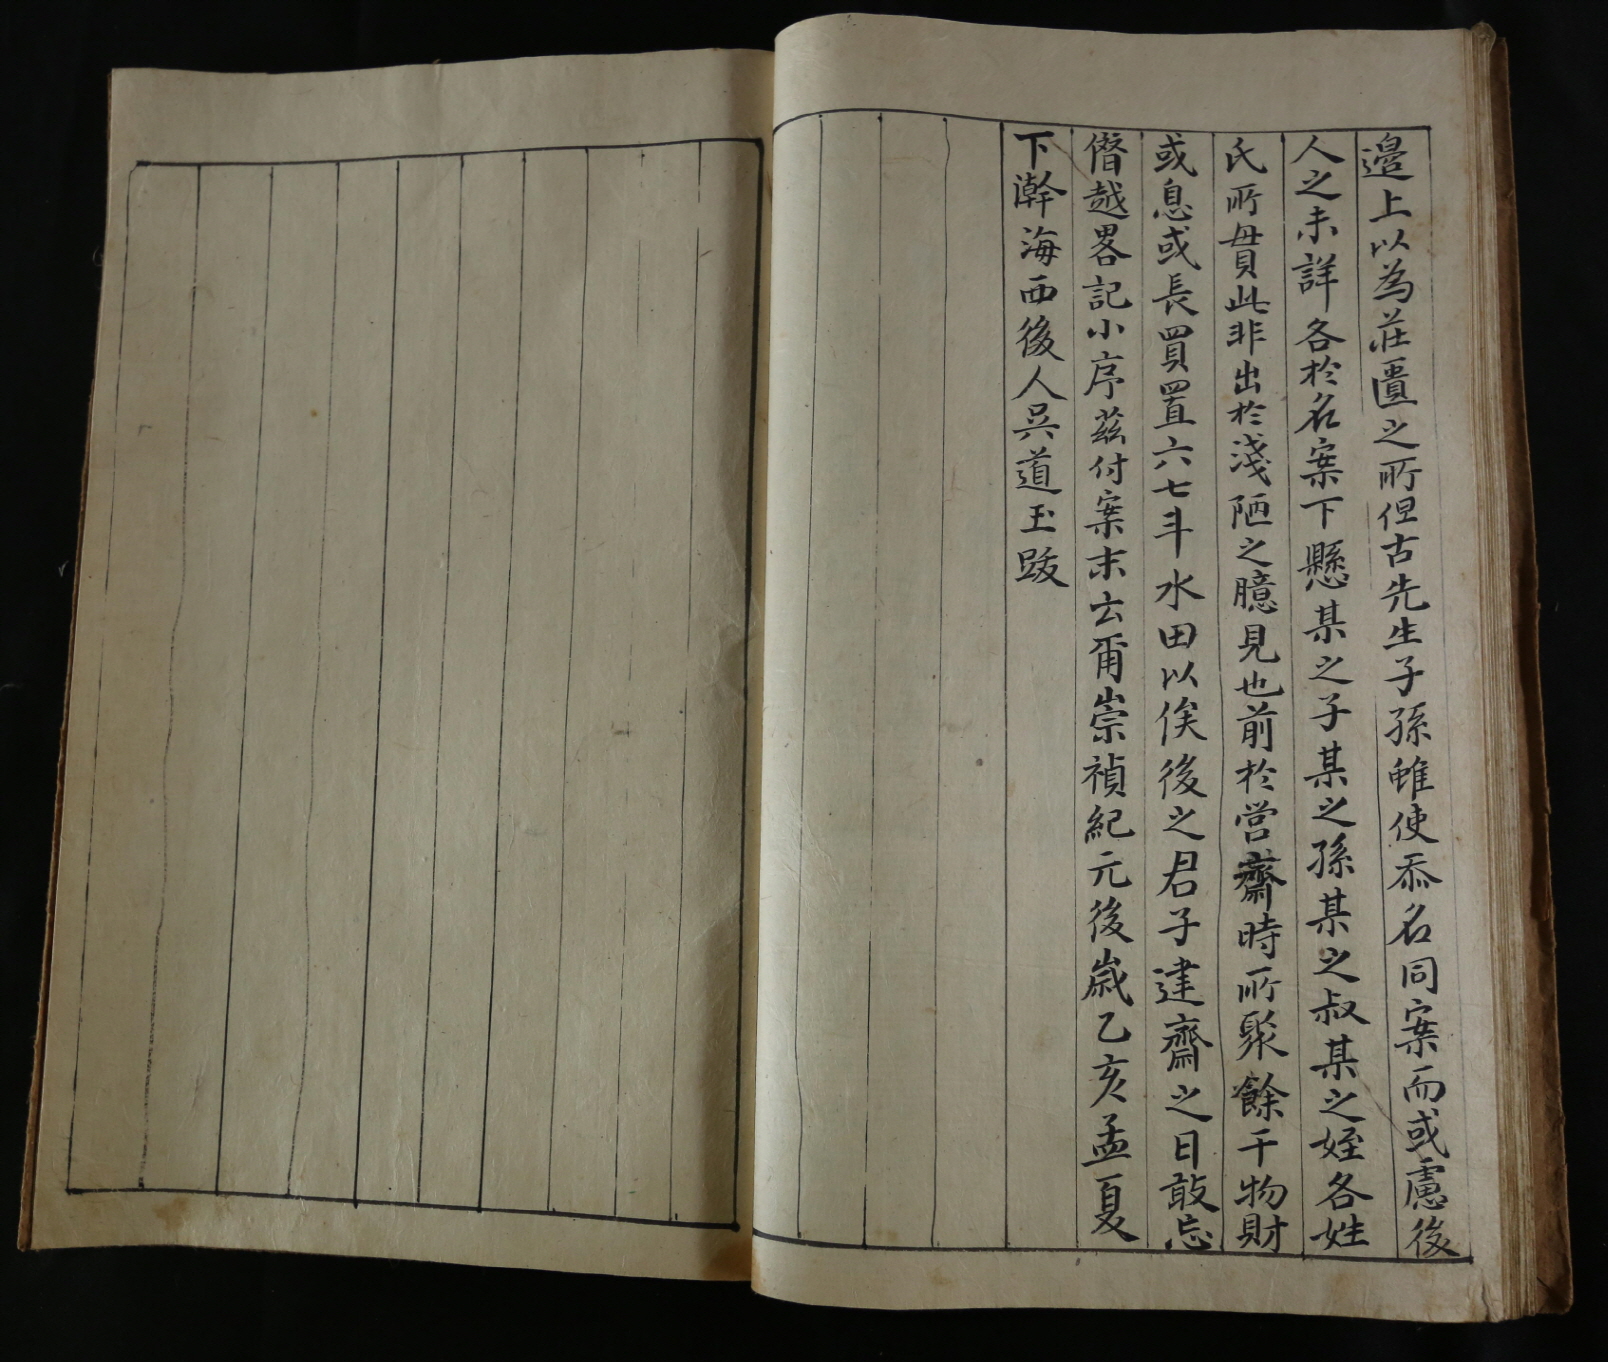 邉上以為莊匵之所但古先生子孫雖使忝名同案而或慮後
人之未詳各於名案下懸某之子某之孫某之叔某之姪各姓
氏所貫此非出於淺陋之臆見也前於営齋時所聚餘干物財
或息或長買置六七斗水田以俟後之君子建齋之日敢忘
僭越畧記小序茲付案末云爾崇禎紀元後歲乙亥孟夏
下澣海西後人吳道玉跋